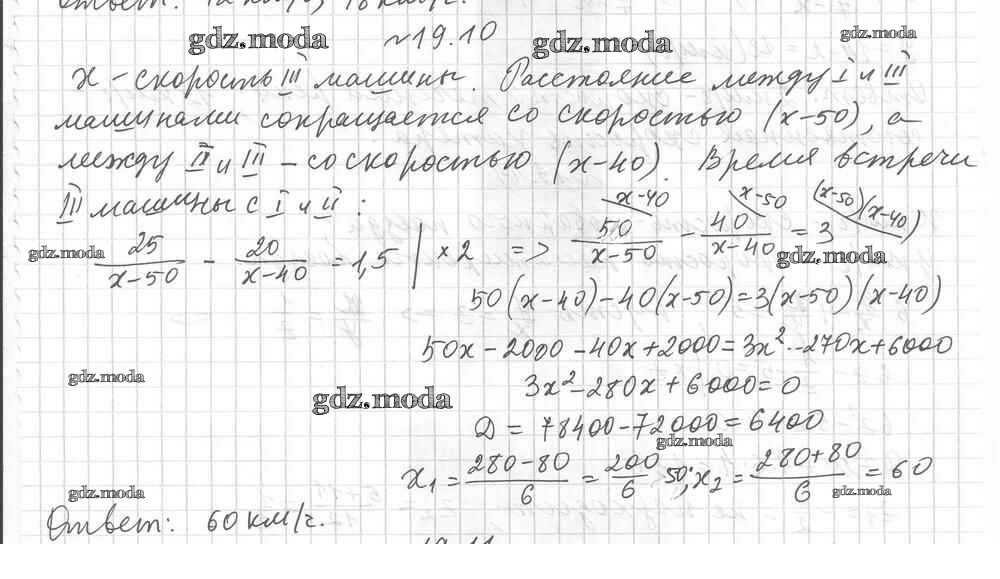 Ответ: 12 км/ч, 18 км/ч.
№19.10
x – скорость III машины. Расстояние между I и III
машинами сокращается со скоростью (x-50), а
между II и III – со скоростью (x-40). Время встречи
III машины с I и II :
25/(x-50) - 20/(x-40) = 1,5 | ×2 => 50/(x-50) - 40/(x-40) = 3
x-40 x-50 (x-50)(x-40)
50(x-40)-40(x-50)=3(x-50)(x-40)
50x-2000-40x+2000=3x²-270x+6000
3x²-280x+6000=0
D = 78400-72000=6400
x₁ = (280-80)/6 = 200/6 50; x₂ = (280+80)/6 = 60
Ответ: 60 км/ч.
19.11
gdz.moda
gdz.moda
gdz.moda
gdz.moda
gdz.moda
gdz.moda
gdz.moda
gdz.moda
gdz.moda
gdz.moda